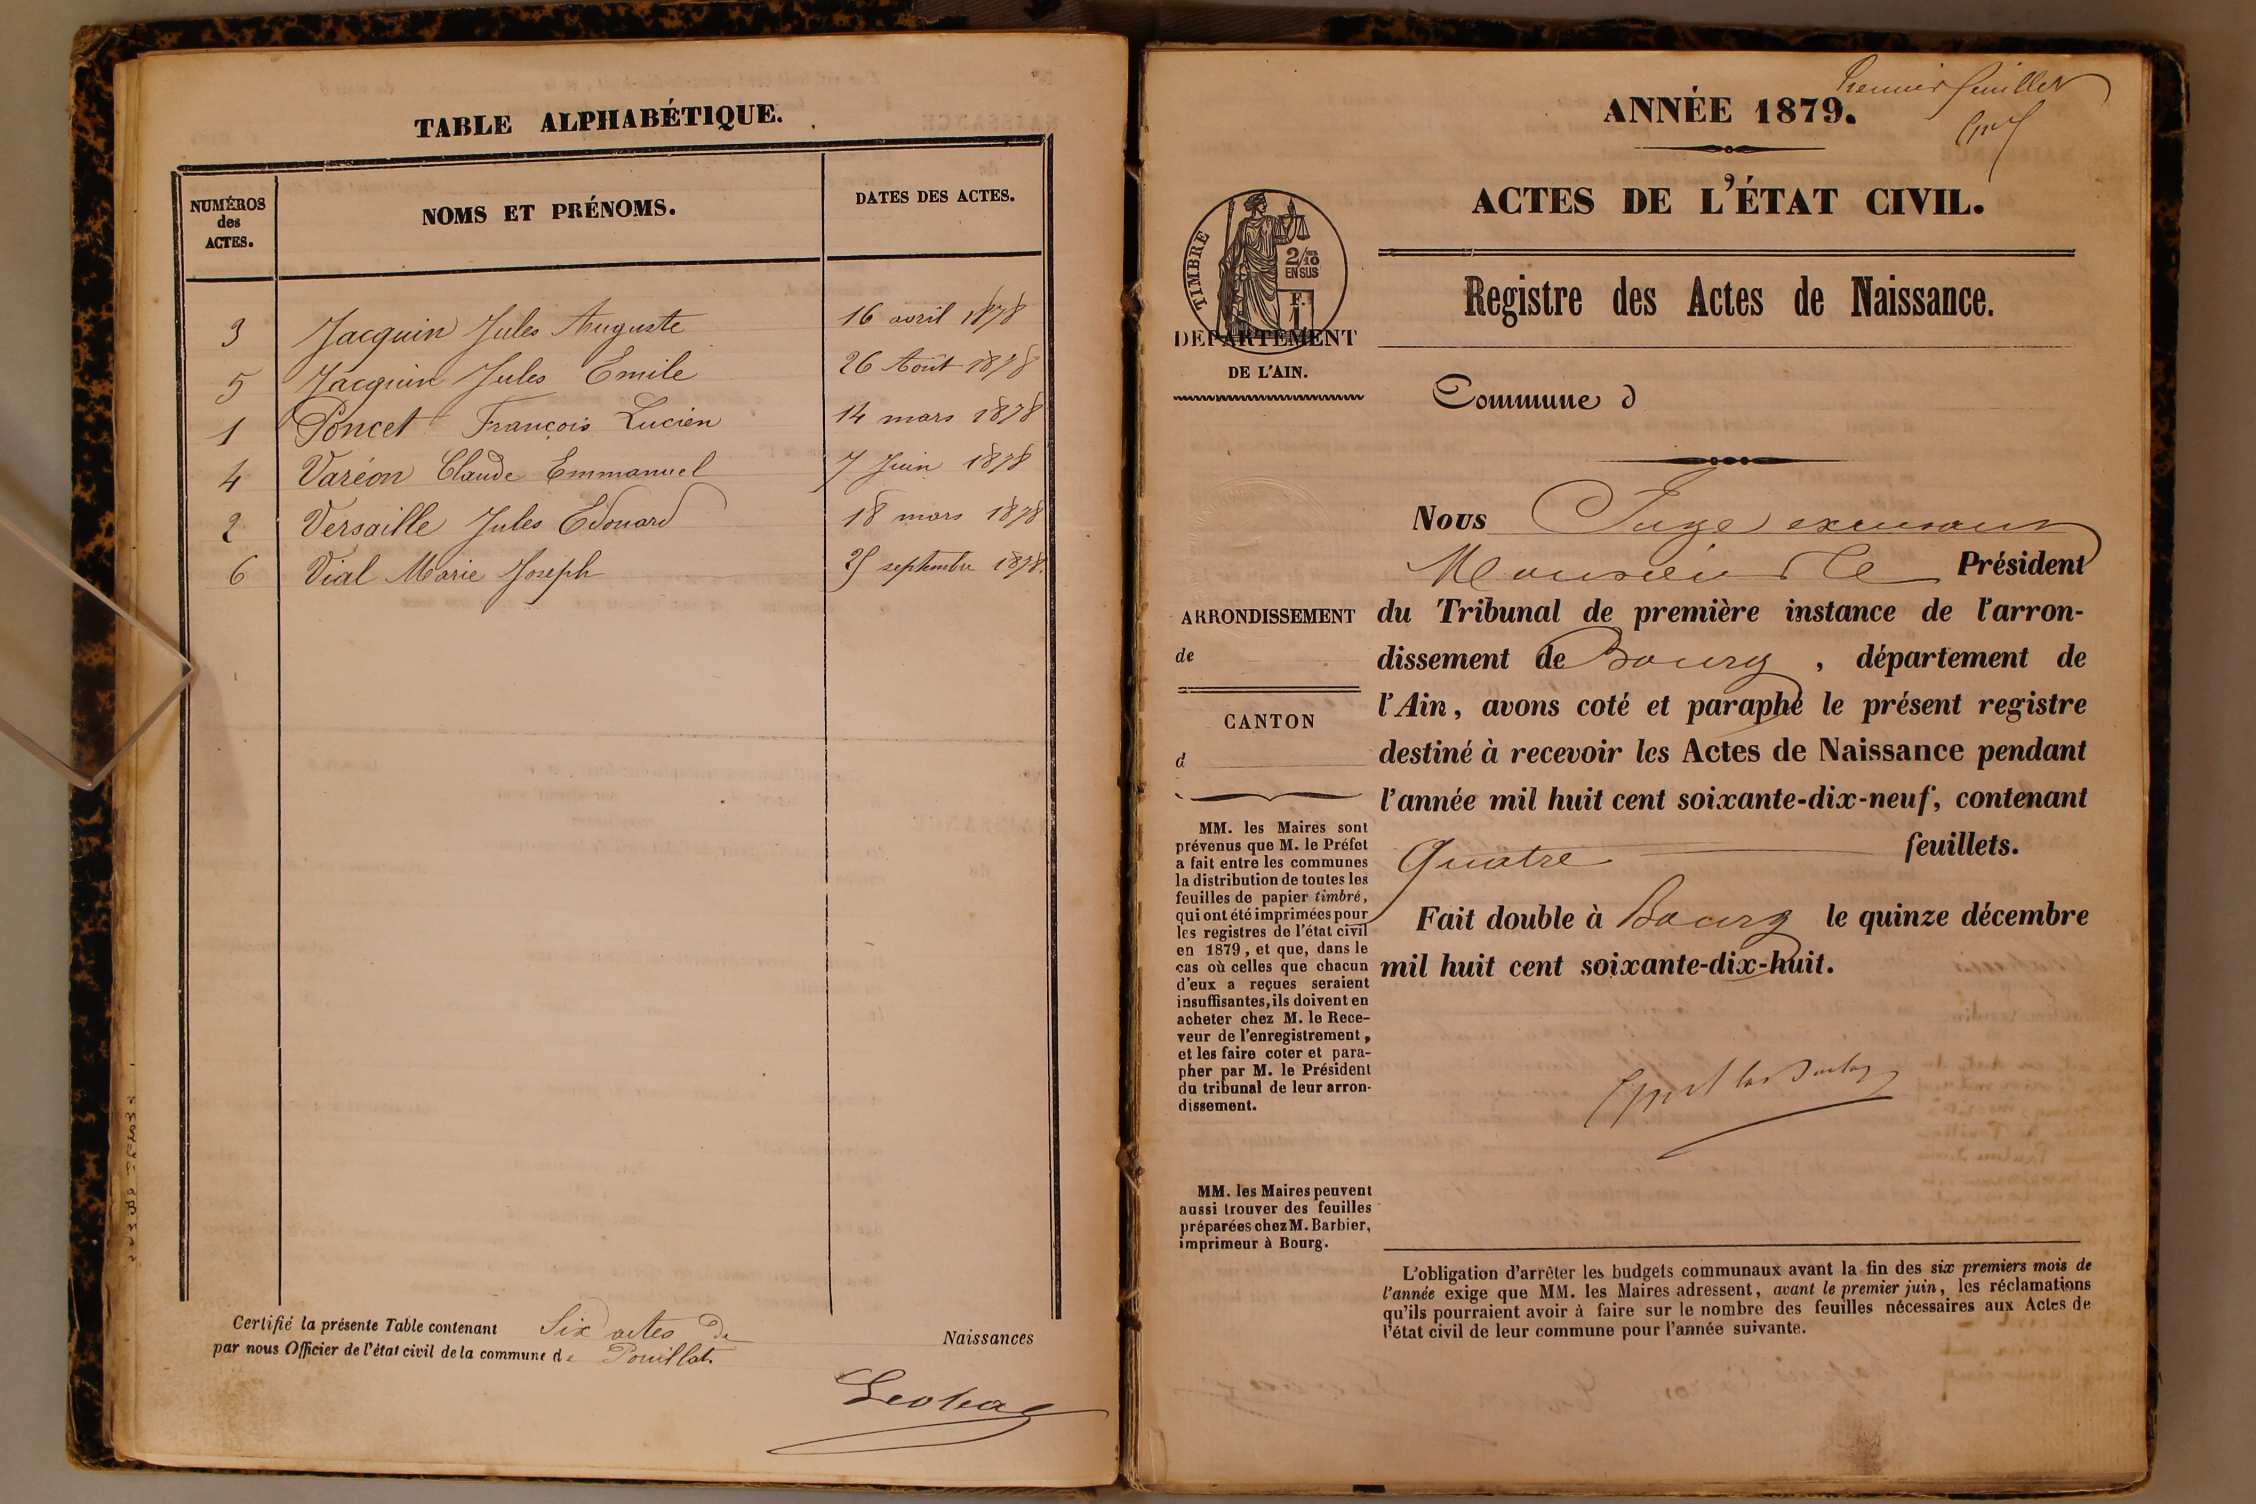 TABLE ALPHABÉTIQUE.
NUMÉROS
des
ACTES.
NOMS ET PRÉNOMS.
DATES DES ACTES.
3 Jacquin Jules Auguste 16 avril 1878
5 Jacquin Jules Emile 26 Août 1878
1 Poncet François Lucien 14 mars 1878
4 Varéon Claude Emmanuel 7 Juin 1878
2 Versaille Jules Edouard 18 mars 1878
6 Vial Marie Joseph septembre 1878.
Certifié la présente Table contenant Six actes de Naissances
par nous Officier de l'état civil de la commune de Pouillat.
Premier feuillet
ANNÉE 1879.
ACTES DE L'ÉTAT CIVIL.
Registre des Actes de Naissance.
TIMBRE
2/10
EN SUS
F.
1
DEPARTEMENT
DE L'AIN.
Commune d
Nous Juge
Monsieur le Président
du Tribunal de première instance de l'arron-
dissement de Bourg, département de
l'Ain, avons coté et paraphé le présent registre
destiné à recevoir les Actes de Naissance pendant
l'année mil huit cent soixante-dix-neuf, contenant
Quatre feuillets.
Fait double à Bourg le quinze décembre
mil huit cent soixante-dix-huit.
ARRONDISSEMENT
de
CANTON
d
MM. les Maires sont
prévenus que M. le Préfet
a fait entre les communes
la distribution de toutes les
feuilles de papier timbré,
qui ont été imprimées pour
les registres de l'état civil
en 1879, et que, dans le
cas où celles que chacun
d'eux a reçues seraient
insuffisantes, ils doivent en
acheter chez M. le Rece-
veur de l'enregistrement,
et les faire coter et para-
pher par M. le Président
du tribunal de leur arron-
dissement.
MM. les Maires peuvent
aussi trouver des feuilles
préparées chez M. Barbier,
imprimeur à Bourg.
L'obligation d'arrêter les budgets communaux avant la fin des six premiers mois de
l'année exige que MM. les Maires adressent, avant le premier juin, les réclamations
qu'ils pourraient avoir à faire sur le nombre des feuilles nécessaires aux Actes de
l'état civil de leur commune pour l'année suivante.